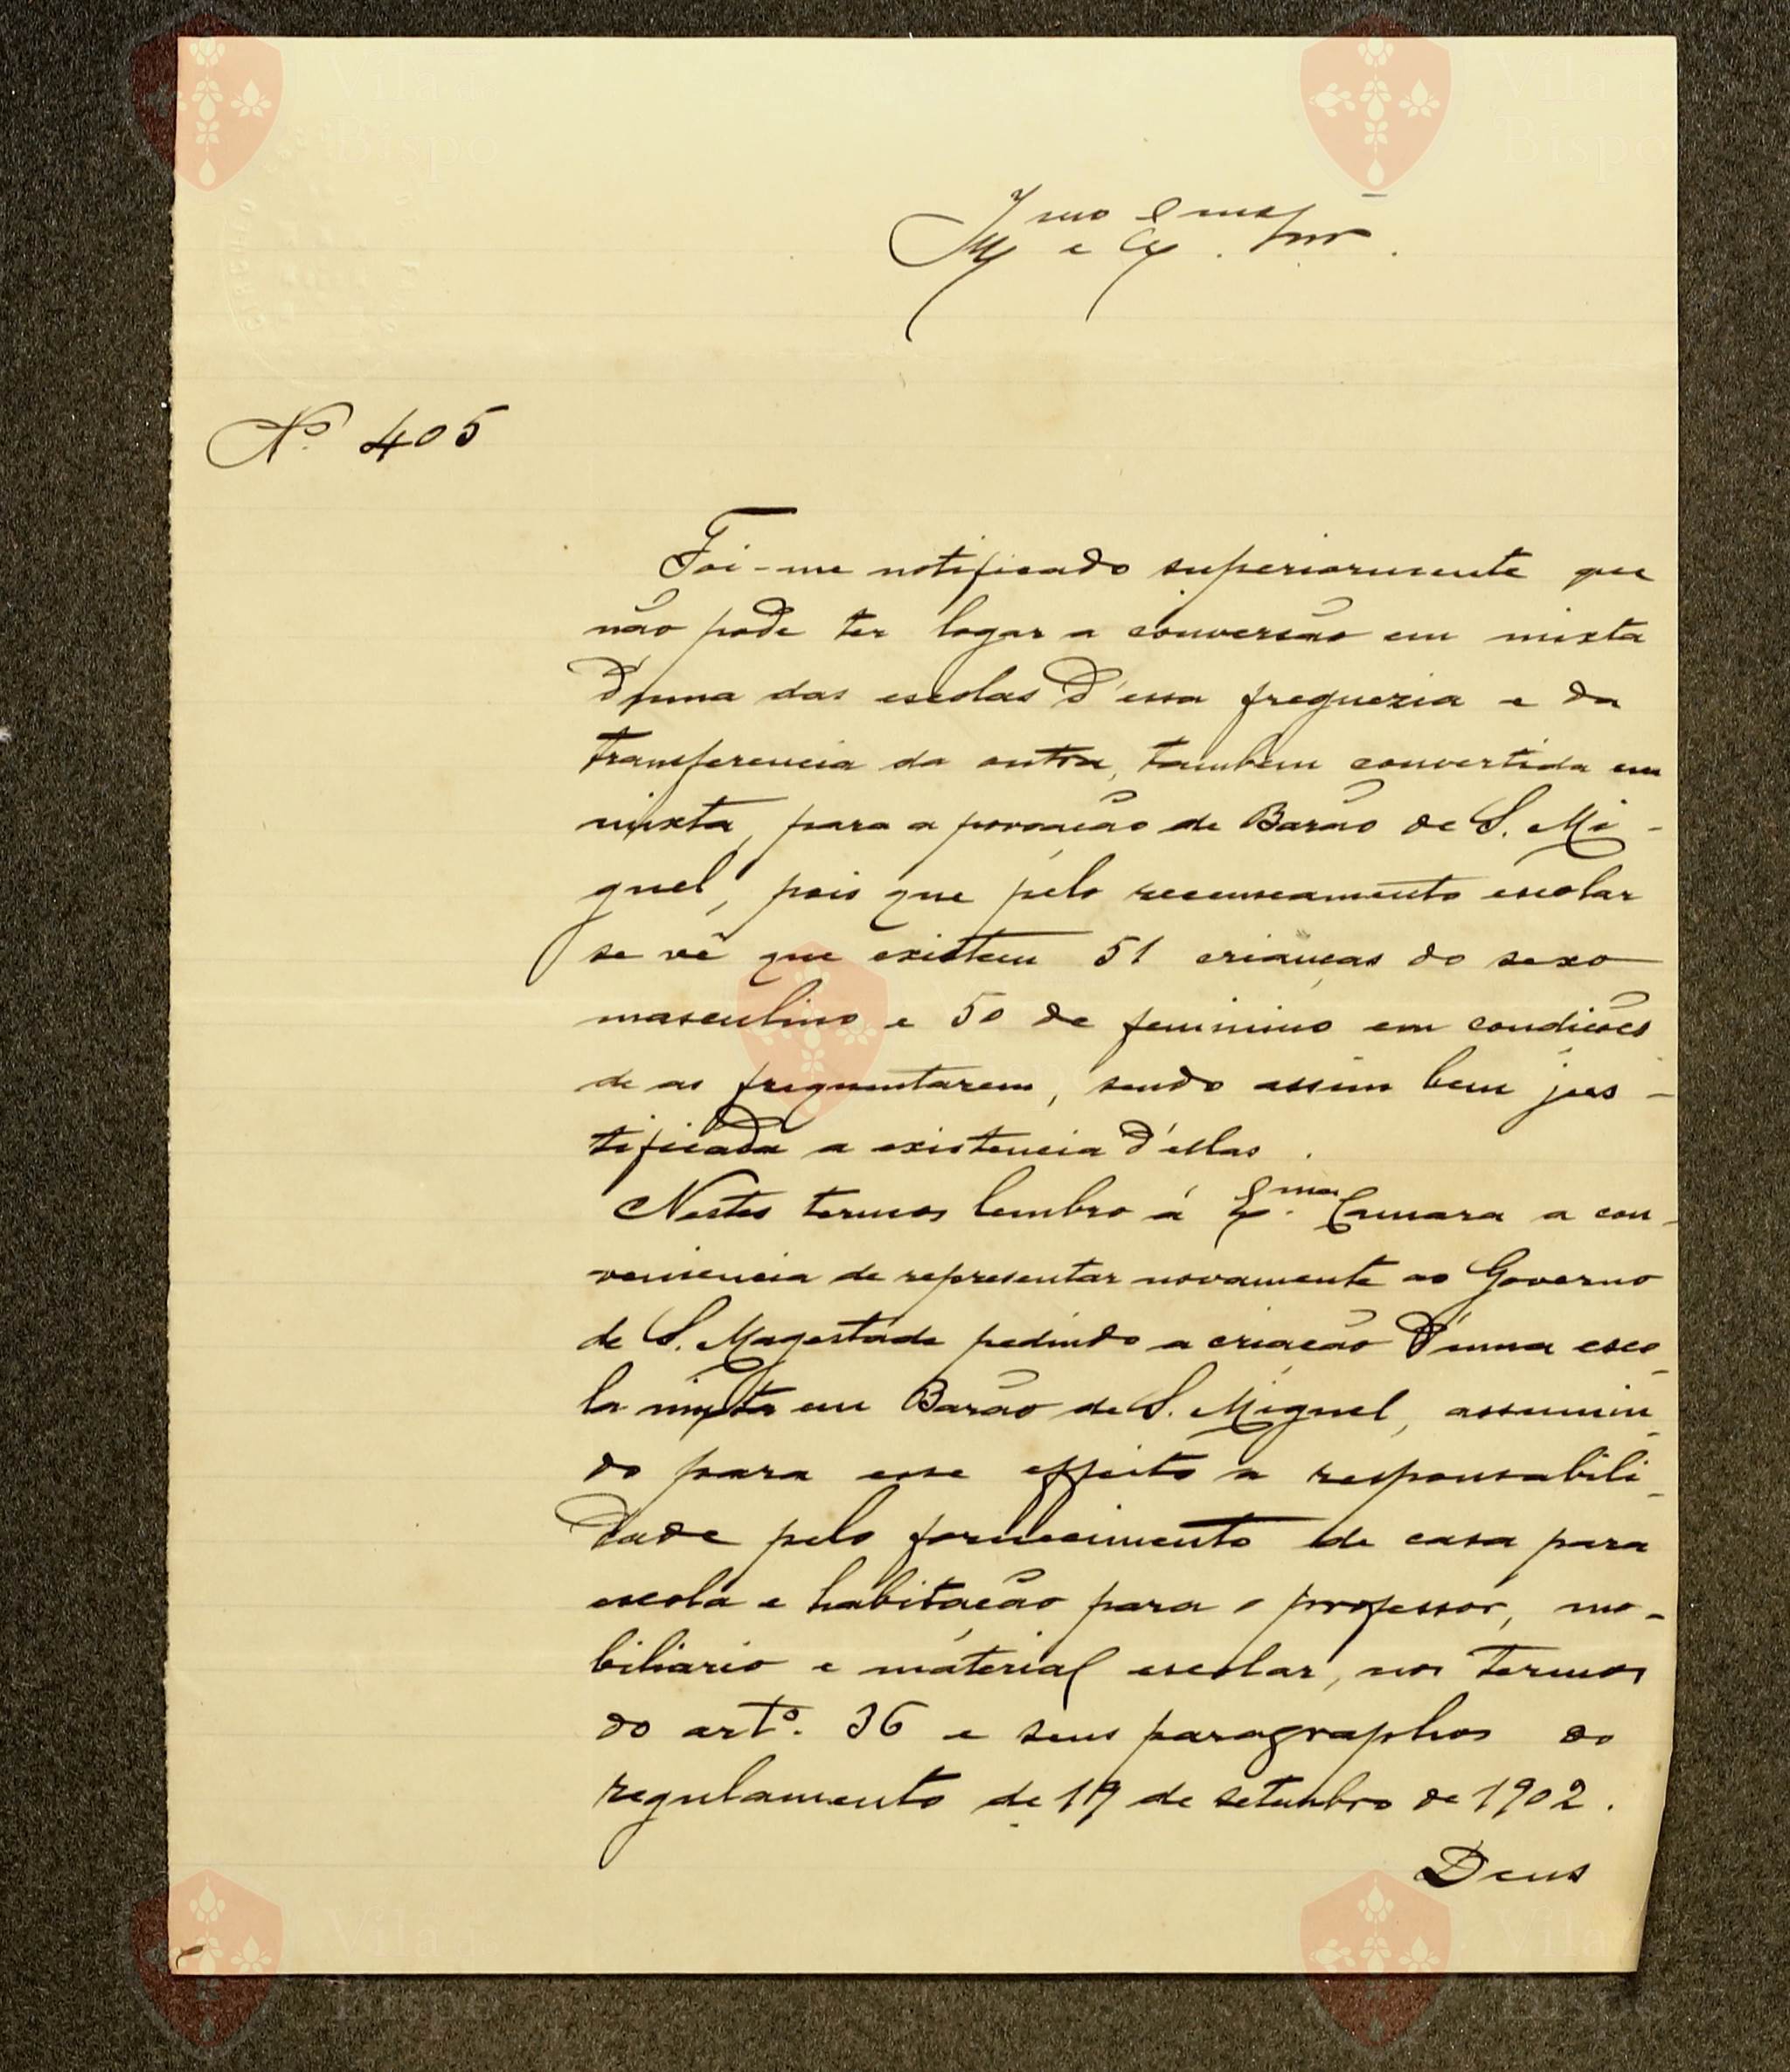 Illmo e Exmo. Snr.
Nº 405
Foi-me notificado superiormente que
não pode ter logar a conversão em mixta
d'uma das escolas d'essa freguezia e da
transferencia da outra, tambem convertida em
mixta, para a povoação de Barão de S. Mi-
guel, pois que pelo recenseamento escolar
se vê que existem 51 crianças do sexo
masculino e 50 de feminino em condições
de as frequentarem, sendo assim bem jus-
tificada a existencia d'ellas.
Nestes termos lembro á Exma. Camara a con-
veniencia de representar novamente ao Governo
de S. Magestade pedindo a criação d'uma esco-
la mixta em Barão de S. Miguel, assumin-
do para esse effeito a responsabili-
dade pelo fornecimento de casa para
escola e habitação para o professor, mo-
biliario e material escolar, nos termos
do artº. 36 e seus paragraphos do
regulamento de 19 de setembro de 1902.
Deus
Vila do
Bispo
Vila do
Bispo
Vila do
Bispo
Vila do
Bispo